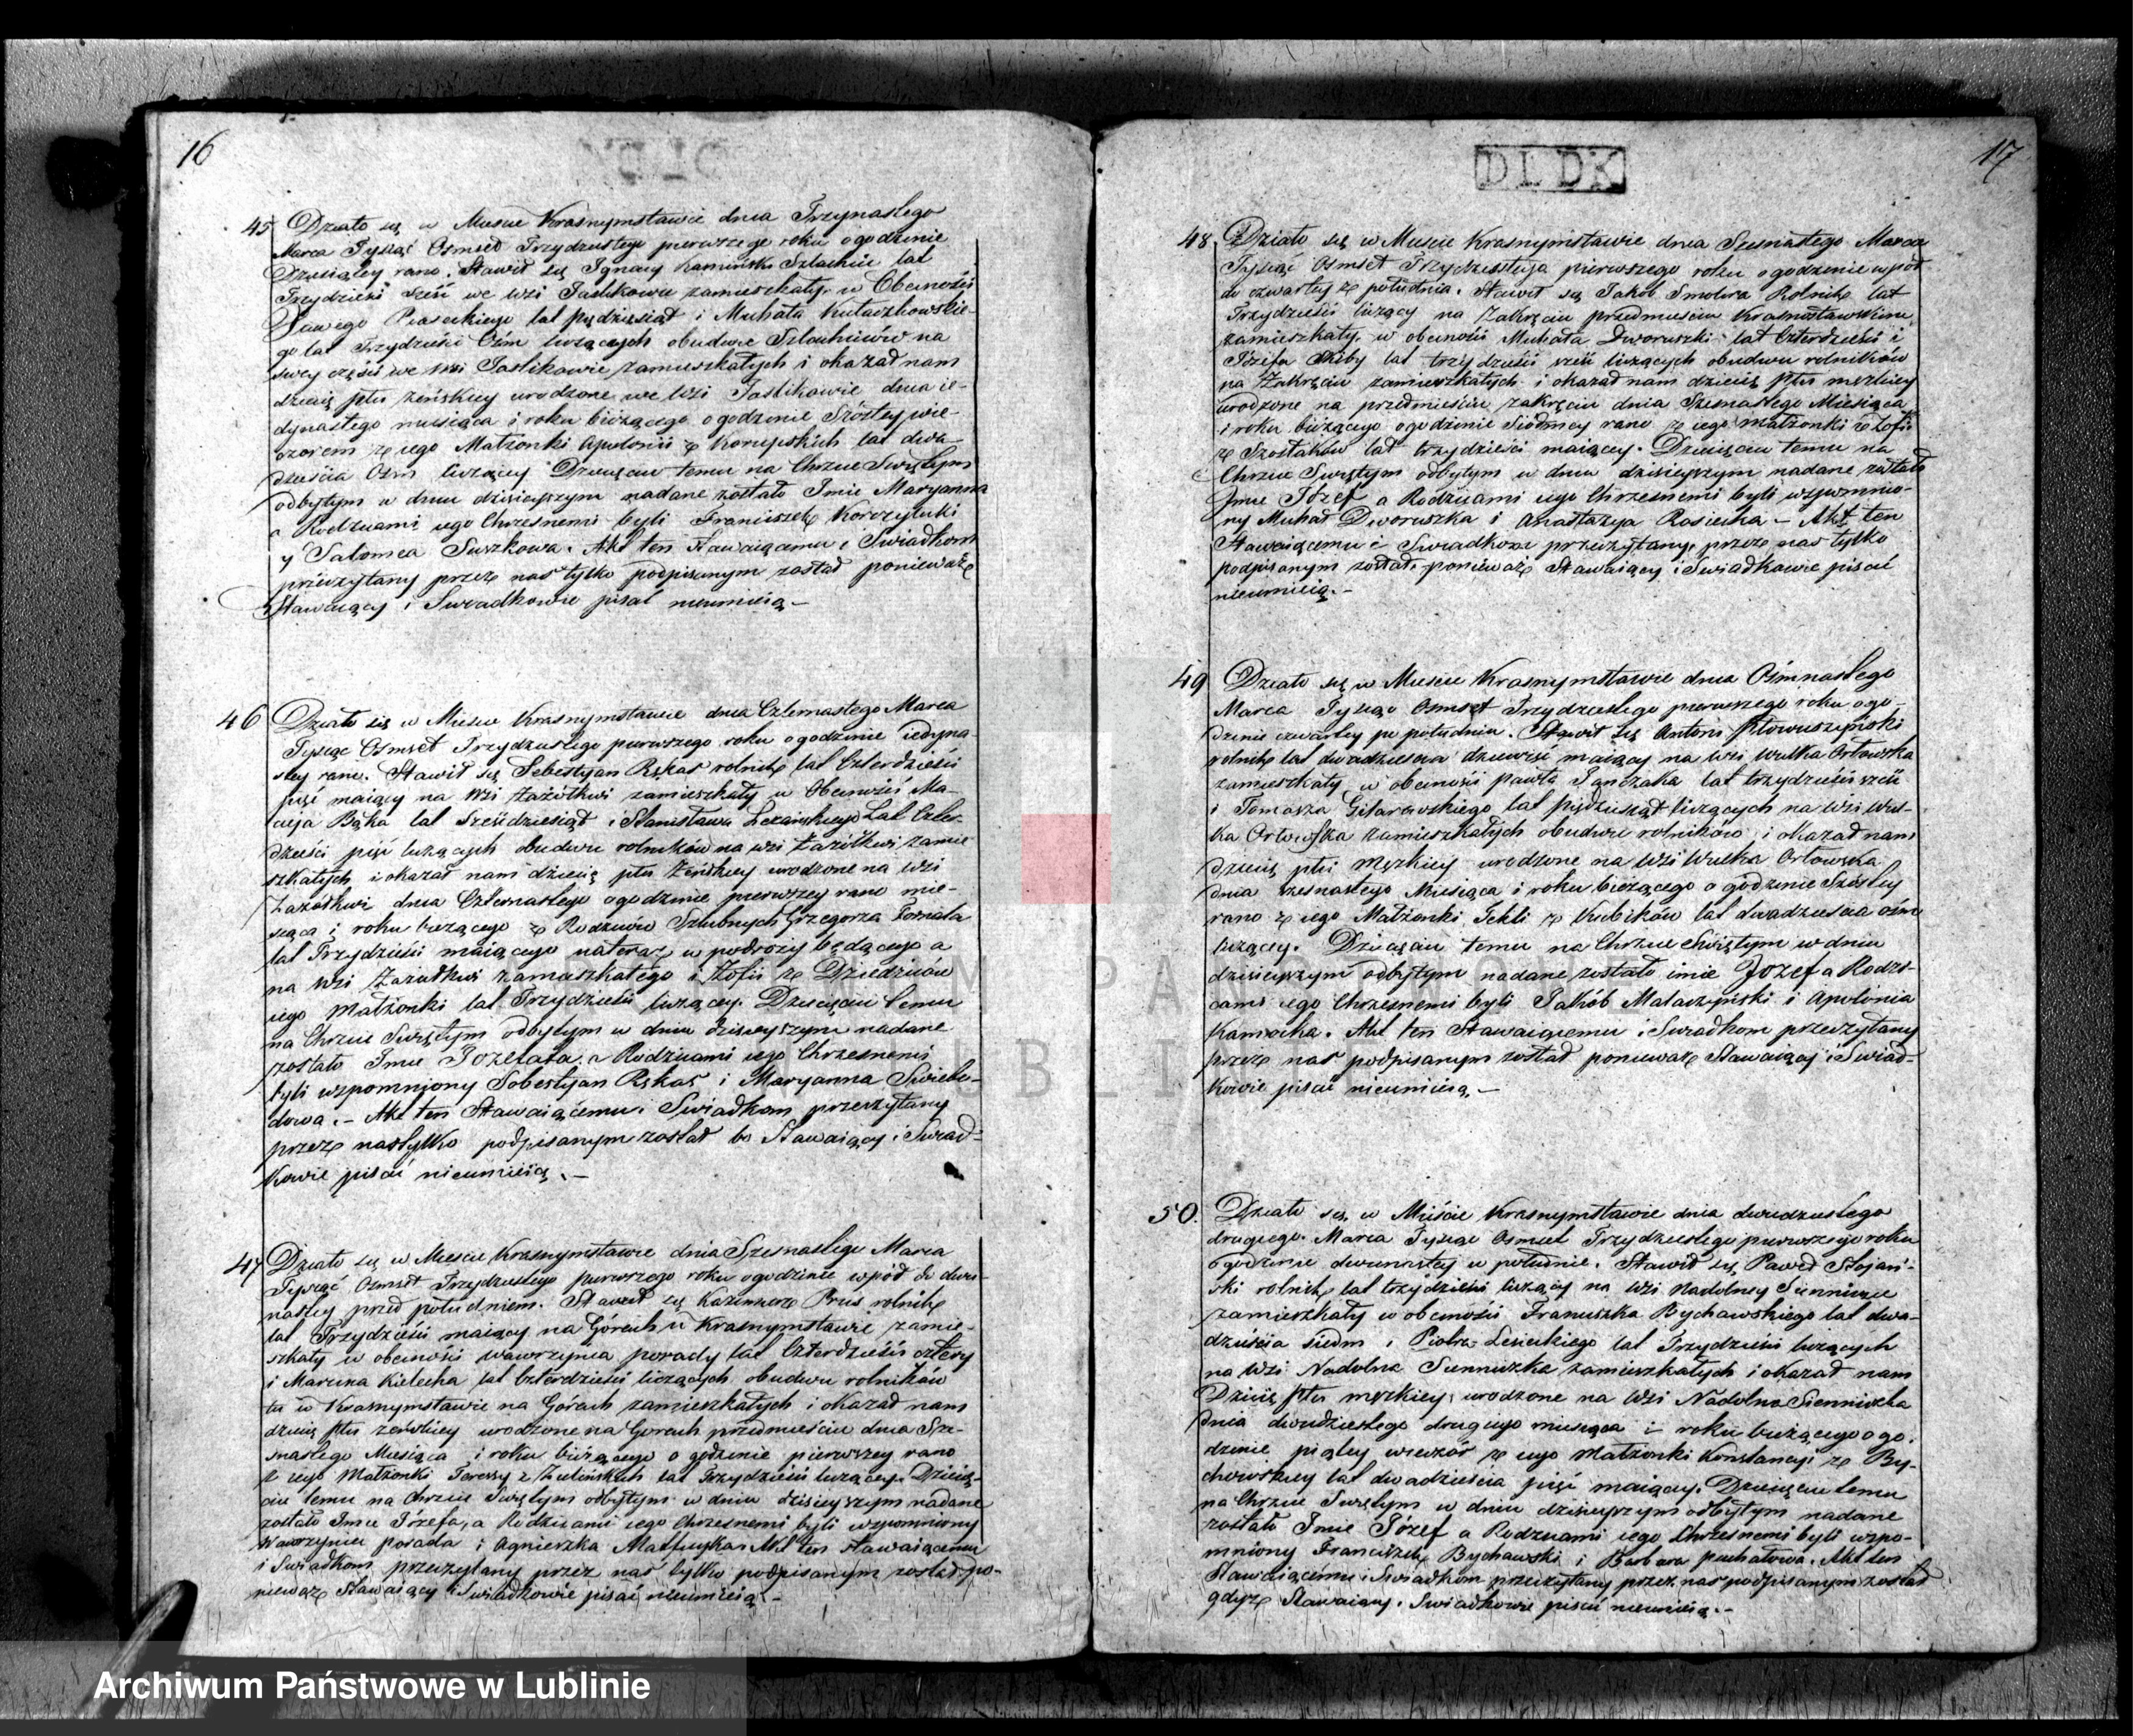 16
45 Działo się w Mieście Krasnymstawie dnia Trzynastego
Marca Tysiąc Osmset Trzydziestego pierwszego roku o godzinie
Dziesiątey rano. Stawił się Ignacy Kaminski Szlachcic lat
Trzydzieści sześć we wsi Jaslikowie zamieszkały, w Obecności
Piaseckiego lat pięćdziesiąt i Michała
go lat Trzydzieści Ośm liczących obudwu Szlachciców na
swey części we wsi Jaslikowie zamieszkałych i okazał nam
dziecię płci żeńskiey urodzone we Wsi Jaslikowie dnia ie-
dynastego miesiąca i roku bieżącego o godzinie Szóstey wie-
czorem z iego Małżonki Apolonii z Korupskich lat dwa-
dzieścia Ośm liczącey Dziecięciu temu na Chrzcie Swiętym
odbytym w dniu dzisieyszym nadane zostało Imie Maryanna
a Rodzicami iego Chrzesnemi byli Franciszek
y Salomea Suszkowa. Akt ten Stawaiącemu i Swiadkom
przeczytany przez nas tylko podpisanym został ponieważ
Stawaiący i Swiadkowie pisać nieumieią.-
46 Działo się w Mieście Krasnymstawie dnia Czternastego Marca
Tysiąc Osmset Trzydziestego pierwszego roku o godzinie iedyna-
stey rano. Stawił się Sebestyan Rękas rolnik lat Czterdzieści
pięć maiący na Wsi Łażółkwi zamieszkały w Obecności Ma-
cieja Bąka lat sześćdziesiąt i Stanisława Lat Czter-
dzieści pięć liczących obudwu rolników na wsi Łażółkwi zamie-
szkałych i okazał nam dziecię płci żeńskiey urodzone na Wsi
Łazółkwi dnia Czternastego o godzinie pierwszey rano mie-
siąca i roku bieżącego z Rodziców Szlubnych Grzegorza Fornala
lat Trzydzieści maiącego na teraz w podroży będącego a
na wsi Łazółkwi zamieszkałego i Zofii z Dziedziców
iego Małżonki lat Trzydzieści liczącey. Dziecięciu temu
na Chrzcie Swiętym odbytym w dniu dzisieyszym nadane
zostało Imie Jozefata, a Rodzicami iego Chrzesnemi
byli wzpomniony Sobestyan Rękas i Maryanna
dowa.- Akt ten Stawaiącemu i Swiadkom przeczytany
przez nas tylko podpisanym został bo Stawaiący i Swiad-
kowie pisać nieumieią.-
47 Działo się w Mieście Krasnymstawie dnia Szesnastego Marca
Tysiąć Osmset Trzydziestego pierwszego roku o godzinie wpół do dwu-
nastey przed południem. Stawił się Kazimierz Prus rolnik
lat Trzydzieści maiący na Górach w Krasnymstawie zamie-
szkały w obecności Wawrzyńca porady lat Czterdzieści cztery
i Marcina Kielecha lat Czterdzieści liczących obudwu rolników
tu w Krasnymstawie na Górach zamieszkałych i Okazał nam
dziecię płci żeńskiey urodzone na Gorach przedmieściu dnia Sze-
snastego Miesiąca i roku bieżącego o godzinie pierwszey rano
z iego Małżonki Teressy z Zielińskich lat Trzydzieści liczącey. Dziecię-
ciu temu na Chrzcie Swiętym odbytym w dniu dzisieyszym nadane
zostało Imie Józefa, a Rodzicami iego Chrzesnemi byli wzpomniony
Wawrzyniec porada i Agnieszka Akt ten Stawaiącemu
i Swiadkom przeczytany przez nas tylko podpisanym został po-
nieważ Stawaiący i Swiadkowie pisać nieumieią.-
17
DLDK
48 Działo się w Mieście Krasnymstawie dnia Szesnastego Marca
Tysiąć Osmset Trzydziestego pierwszego roku o godzinie wpół
do czwartey z południa. Stawił się Jakób Smolira Rolnik lat
Trzydzieści liczący na Zakręciu przedmieściu Krasnostawskim
zamieszkały, w obecności Michała Dworuszki lat Czterdzieści i
Józefa lat trzydzieści sześć liczących obudwu rolników
na Zakręciu zamieszkałych i okazał nam dziecię płci męzkiey
urodzone na przedmieściu Zakręciu dnia Szesnastego Miesiąca
i roku bieżącego o godzinie Siódmey rano z iego małżonki Zofii
z Szostaków lat trzydzieści maiącey. Dziecięciu temu na
Chrzcie Swiętym odbytym w dniu dzisieyszym nadane zostało
Imie Józef a Rodzicami iego Chrzesnemi byli wzpomnio-
ny Michał Dworuszka i Anastazya Rosiecka - Akt ten
Stawaiącemu i Swiadkom przeczytany, przez nas tylko
podpisanym został ponieważ Stawaiący i Swiadkowie pisać
nieumieią.-
49 Działo się w Mieście Krasnymstawie dnia Ośmnastego
Marca Tysiąc Osmset Trzydziestego pierwszego roku o go-
dzinie czwartey po południu. Stawił się Antoni
rolnik lat dwadzieścia dziewięć maiący na wsi Wulka Orłowska
zamieszkały w obecności pawła Janczaka lat trzydzieści sześć
i Tomasza Gitarowskiego lat pięćdziesiąt liczących na wsi Wul-
ka Orłowska zamieszkałych obudwu rolników i okazał nam
dziecię płci męzkiey urodzone na wsi Wulka Orłowska
dnia szesnastego Miesiąca i roku bieżącego o godzinie Szóstey
rano z iego Małżonki Tekli z Kubików lat dwadzieścia ośm
liczącey. Dziecięciu temu na Chrzcie Swiętym w dniu
dzisieyszym odbytym nadane zostało imie Jozef a Rodzi-
cami iego Chrzesnemi byli Jakób Malaczyński i Apolonia
Kamocka. Akt ten Stawaiącemu i Swiadkom przeczytany
przez nas podpisanym został ponieważ Stawaiący i Swiad-
kowie pisać nieumieią.-
50. Działo się w Mieście Krasnymstawie dnia dwudziestego
drugiego Marca Tysiąc Osmset Trzydziestego pierwszego roku
o godzinie dwunastey w południe. Stawił się Paweł Stojań-
ski rolnik lat trzydzieści liczący na Wsi Nadolney Siennicy
zamieszkały w obecności Franciszka Bychawskiego lat dwa-
dzieścia siedm i Piotra Lesieckiego lat Trzydzieści liczących
na Wsi Nadolna Siennicka zamieszkałych i okazał nam
Dziecię płci męzkiey urodzone na Wsi Nadolna Siennicka
dnia dwudziestego drugiego miesiąca i roku bieżącego o go-
dzinie piątey wieczór z iego Małżonki Konstancyi z By-
chowskiey lat dwadzieścia pięć maiącey. Dziecięciu temu
na Chrzcie Swiętym w dniu dzisieyszym odbytym nadane
zostało Imie Józef a Rodzicami iego Chrzesnemi byli wzpo-
mniony Franciszek Bychawski i Barbara puchałowa. Akt ten
Stawaiącemu i Swiadkom przeczytany przez nas podpisanym został
gdyż Stawaiący i Swiadkowie pisać nieumieią.-
Archiwum Państwowe w Lublinie